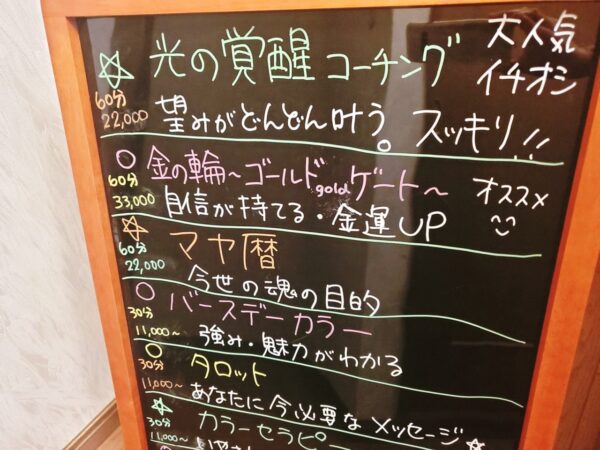 ☆ 光の覚醒 コーチング 大人気 イチオシ
60分
22,000 望みがどんどん叶う。スッキリ!!
○ 金の輪〜ゴールドgoldゲート〜 オススメ
60分
33,000 自信が持てる・金運UP
☆ マヤ暦
60分
22,000 今世の魂の目的
○ バースデーカラー
30分
11,000〜 強み・魅力がわかる
○ タロット
30分
11,000〜 あなたに今必要なメッセージ☆
☆ カラーセラピー
30分
11,000〜